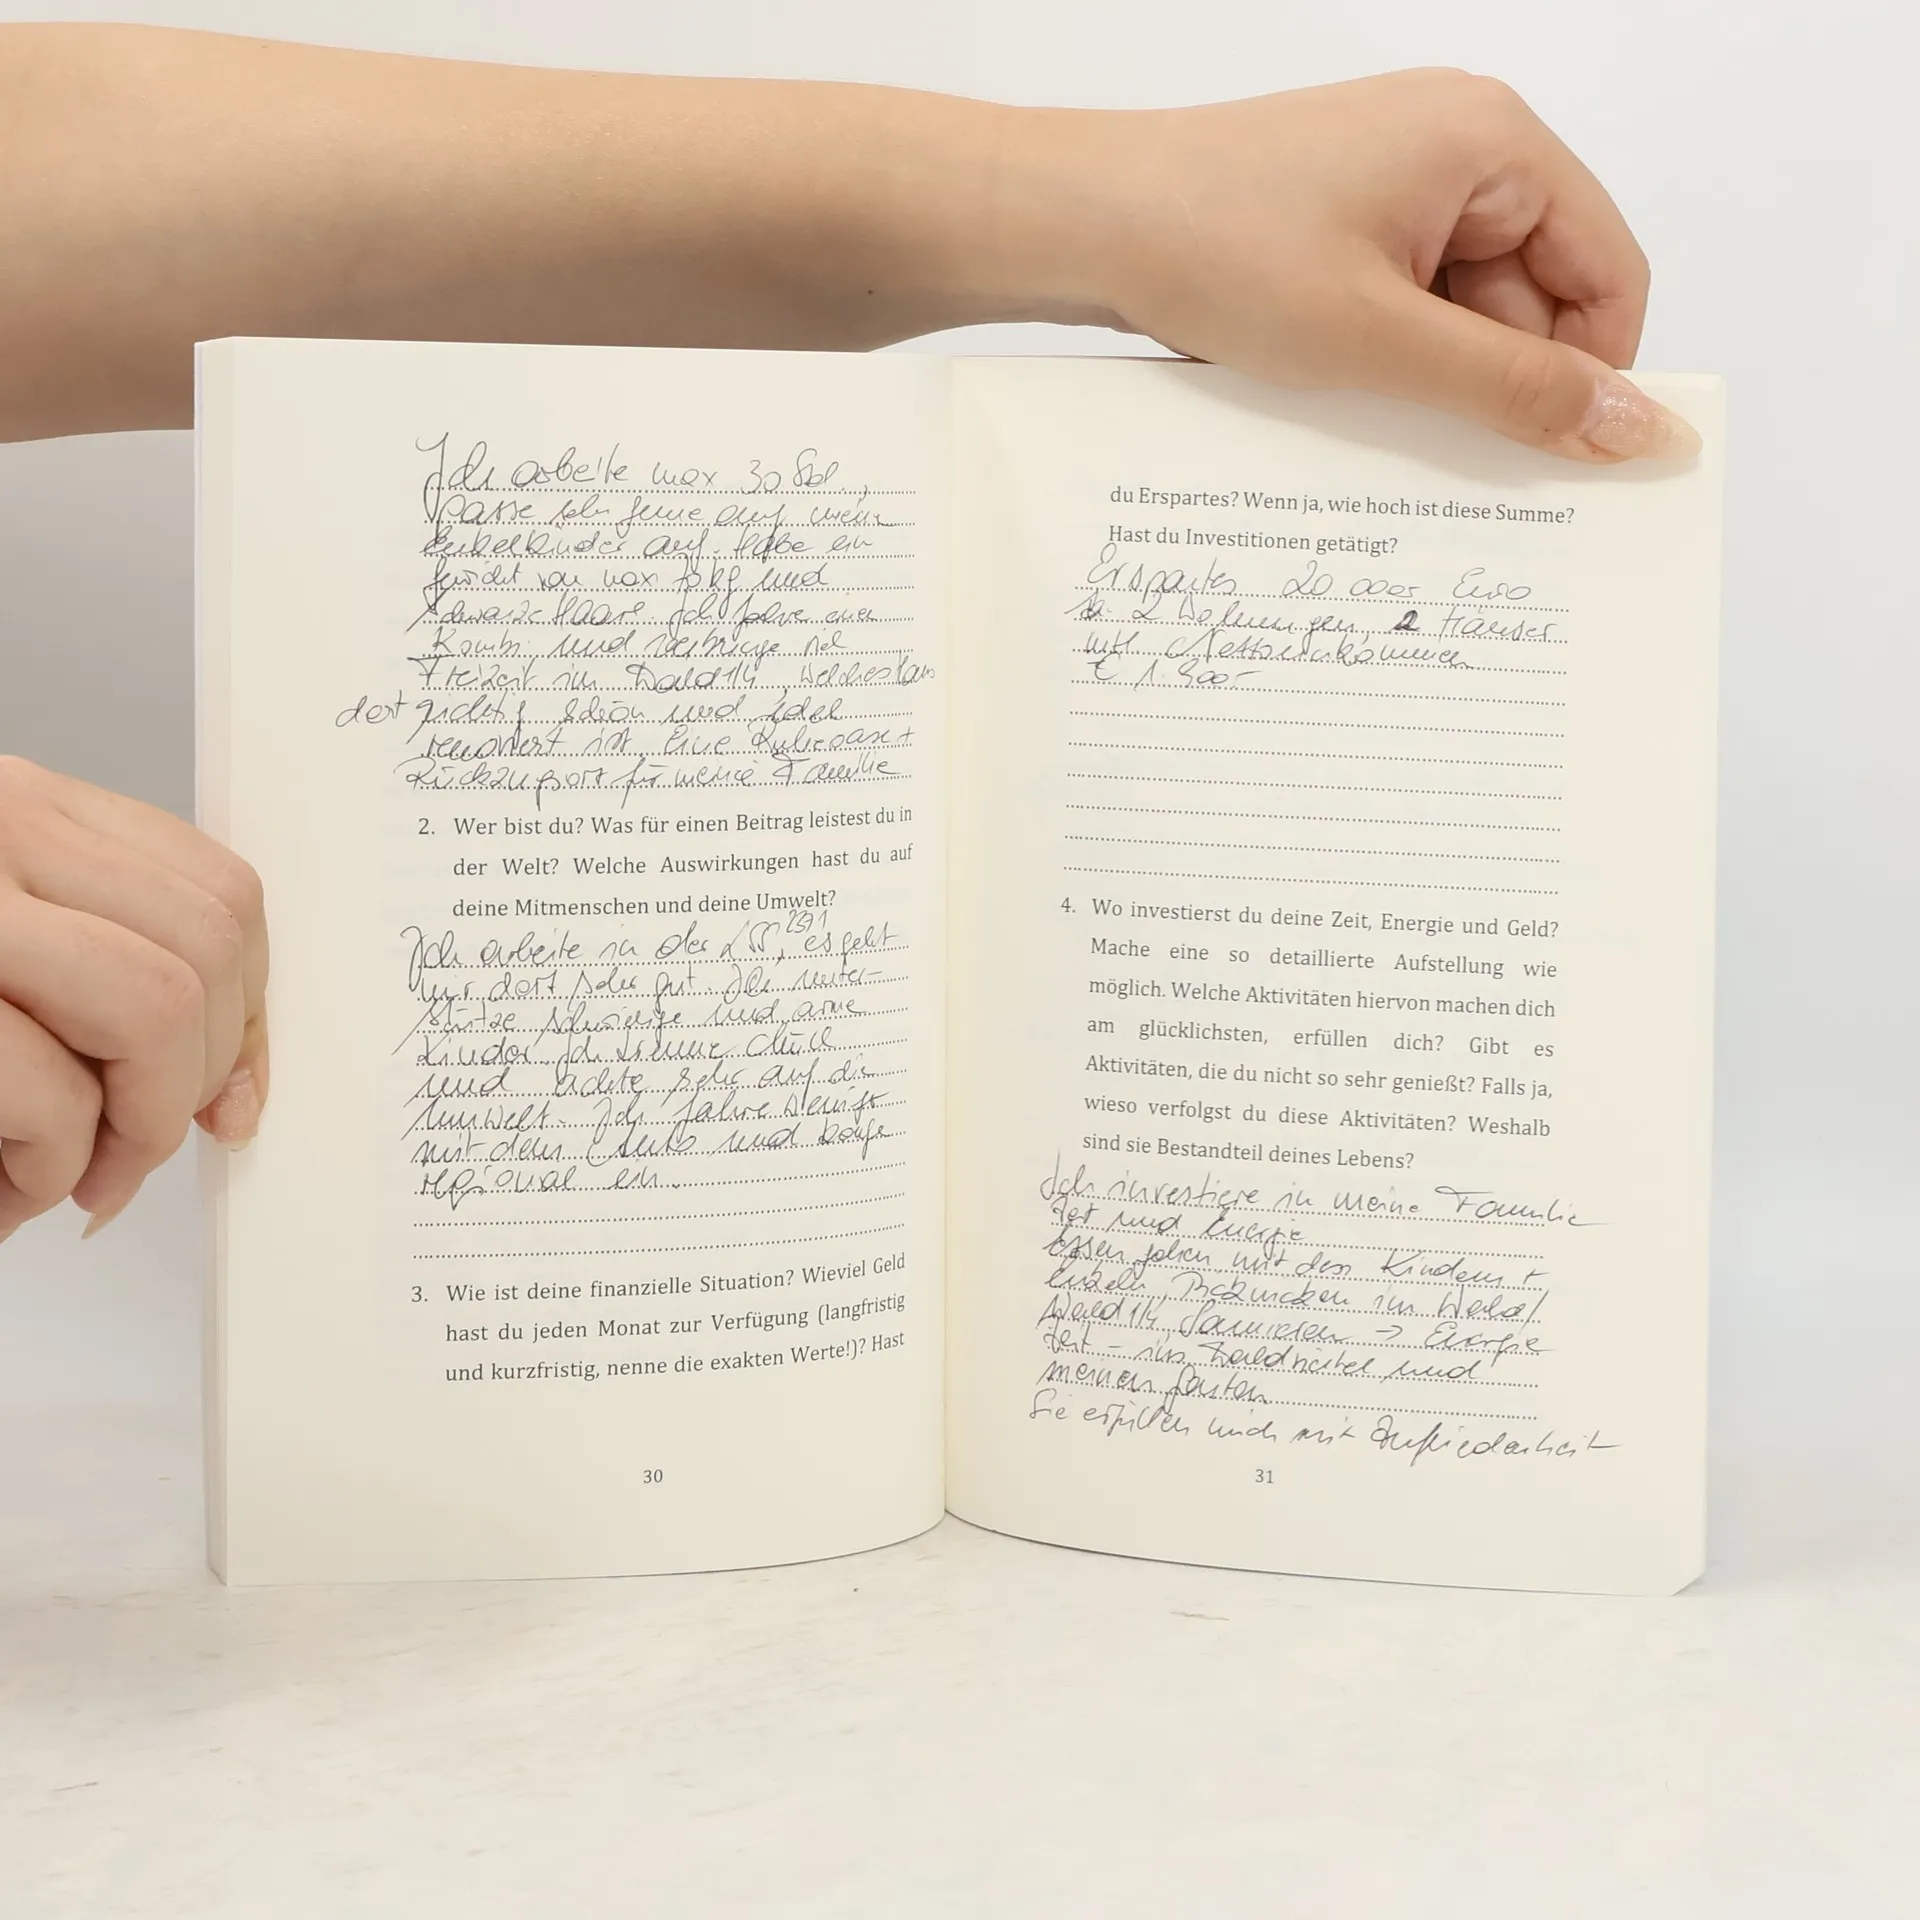 Ich arbeite max 30 Std.,
passe sehr gerne auf meine
Enkelkinder auf. Habe ein
Gewicht von max 70 kg und
schwarze Haare. Ich fahre einen
Kombi und verbringe viel
Freizeit im Wald 114, welches Haus
dort richtig schön und edel
renoviert ist. Eine Ruheoase +
Rückzugsort für meine Familie
2. Wer bist du? Was für einen Beitrag leistest du in
der Welt? Welche Auswirkungen hast du auf
deine Mitmenschen und deine Umwelt?
Ich arbeite in der es geht
mir dort sehr gut. Ich unter-
stütze schwierige und arme
Kinder. Ich trenne Müll
und achte sehr auf die
Umwelt. Ich fahre wenig
mit dem Auto und kaufe
regional ein.
3. Wie ist deine finanzielle Situation? Wieviel Geld
hast du jeden Monat zur Verfügung (langfristig
und kurzfristig, nenne die exakten Werte!)? Hast
30
du Erspartes? Wenn ja, wie hoch ist diese Summe?
Hast du Investitionen getätigt?
Erspartes 20 000,- Euro
Ja. 2 Wohnungen, 2 Häuser
mtl. Nettoeinkommen
€ 1.900,-
4. Wo investierst du deine Zeit, Energie und Geld?
Mache eine so detaillierte Aufstellung wie
möglich. Welche Aktivitäten hiervon machen dich
am glücklichsten, erfüllen dich? Gibt es
Aktivitäten, die du nicht so sehr genießt? Falls ja,
wieso verfolgst du diese Aktivitäten? Weshalb
sind sie Bestandteil deines Lebens?
Ich investiere in meine Familie
Zeit und Energie
Essen gehen mit den Kindern +
Enkeln, Picknicken im Wald/
Wald 114, Sanieren → Energie
Zeit - ins und
meinen Garten
Sie erfüllen mich mit Zufriedenheit
31